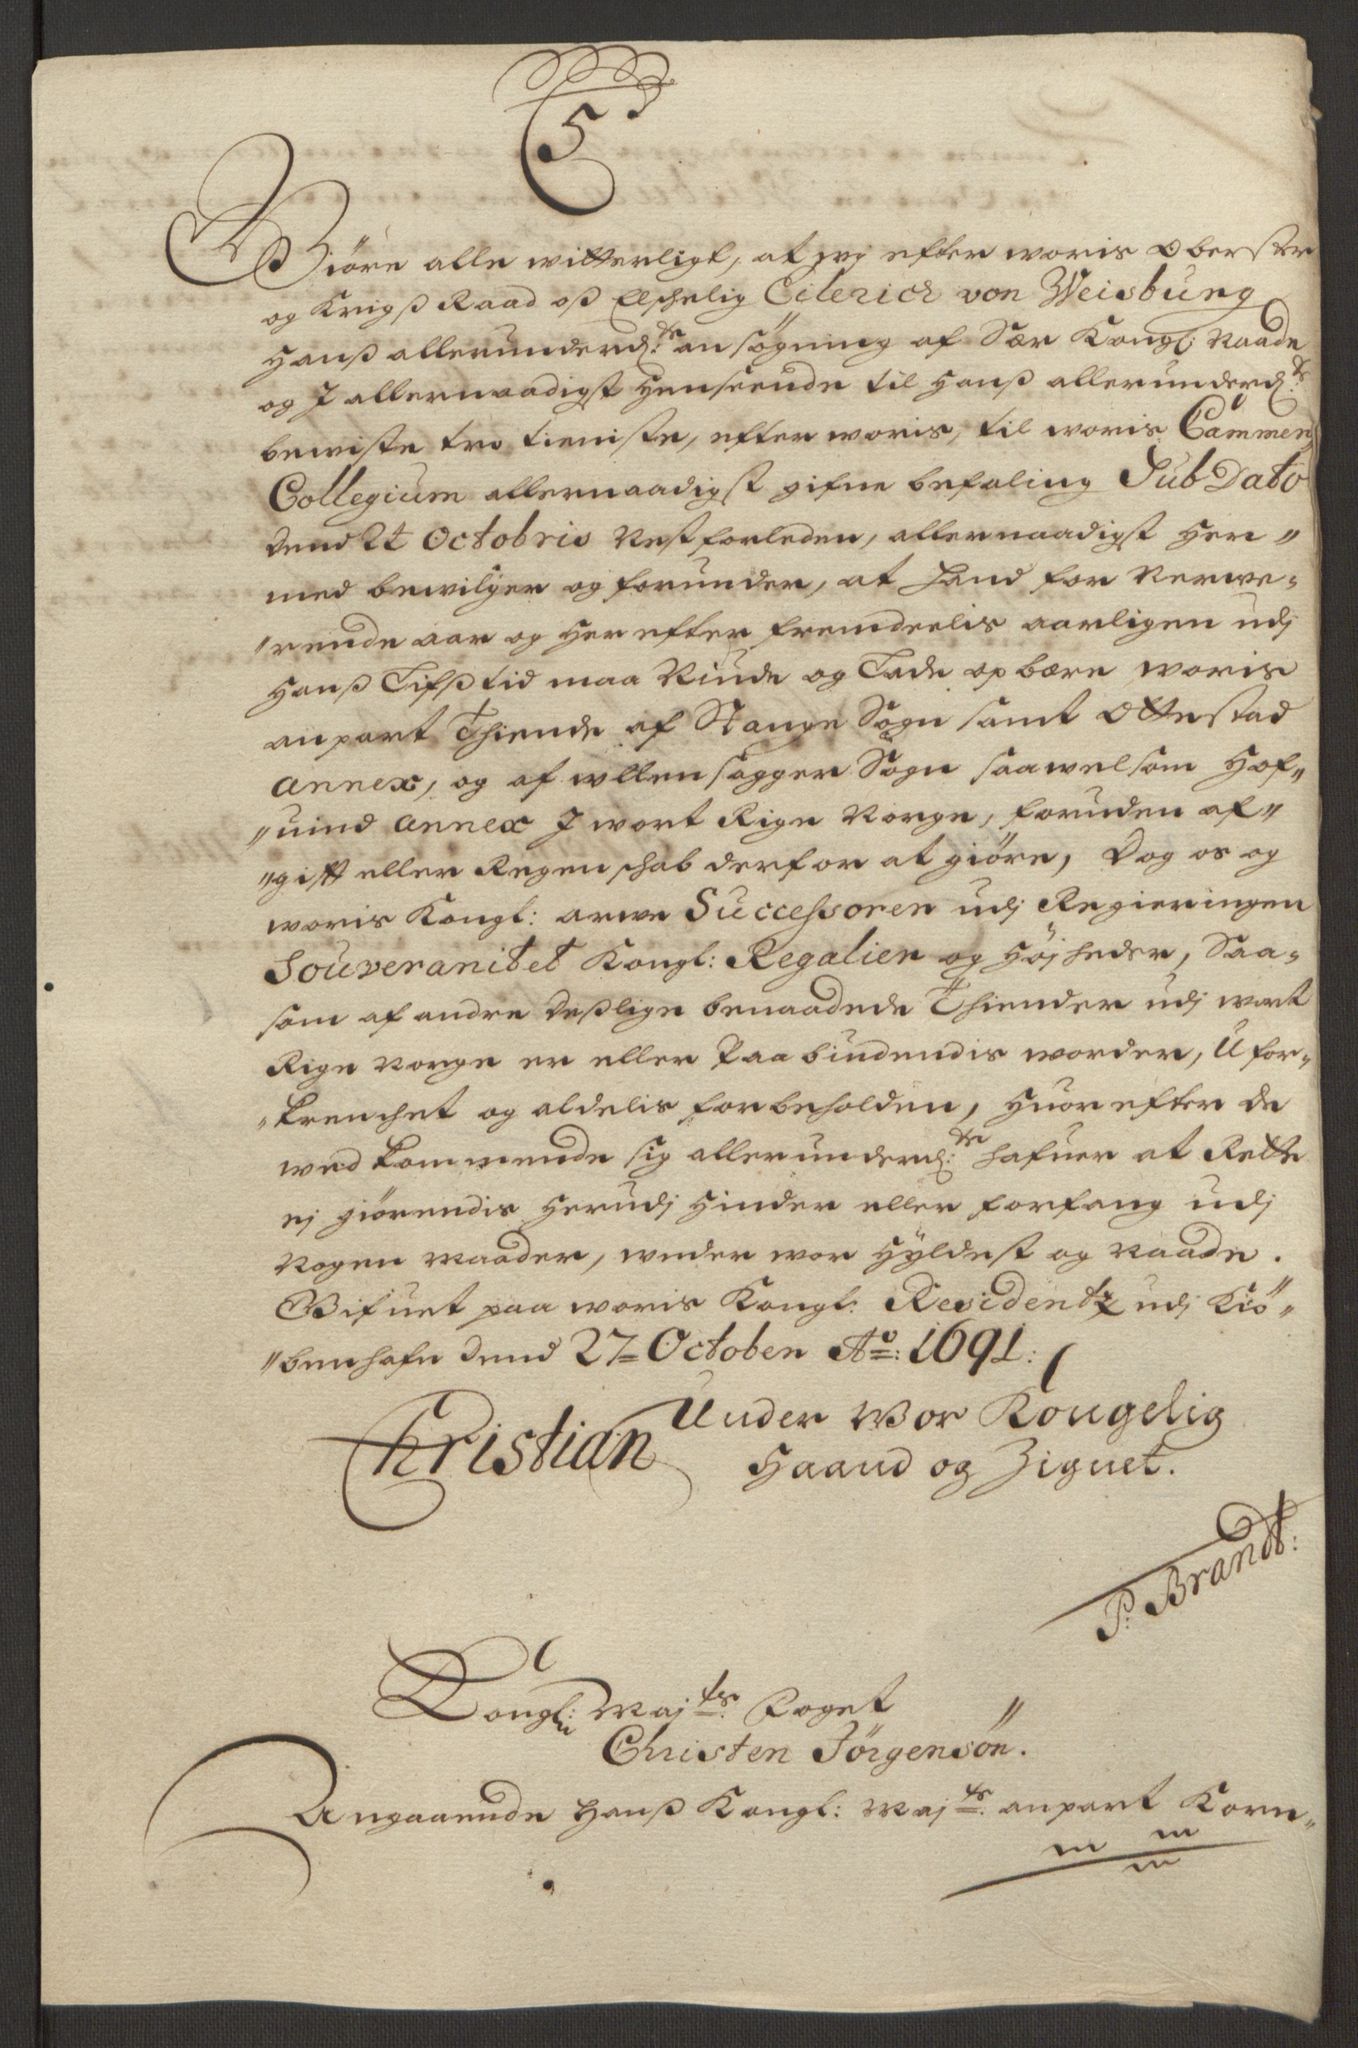 C5
Giöre alle witterligt, at wj efter woris Oberster
og Krigß Raad oß Elschelig Cilerich von Weisburg
Hanß allerunderd:ste ansögning af Sær Kongl: Naade
og J allernaadigst Henseende til Hanß allerunderd:ste
bewiste tro tieniste, efter woris, til woris Cammer
Collegium allernaadigst gifne befaling Sub Dato
dend 2t Octobris Nestforleden, allernaadigst Her„
med bewilger og forunder, at Hand for Nerwe„
„rende aar og Her efter fremdeelis aarligen udj
Hanß Lifß tid maa Niude og Lade opbære woris
anpart Thiende af Stange Sogn samt Ottestad
annex, og af Ullensagger Sogn saawelsom Hof„
„uind annex J wort Rige Norge, foruden af„
„gift eller Regenschab derfor at giöre, Dog os og
woris Kongl: arwe Successorer udj Regieringen
Souveranitet Kongl: Regalier og Höjheder, Saa„
som af andre deßlige benaadede Thiender udj wort
Rige Norge er eller Paabindendis worder, Ufor„
„krenchet og aldelis forbeholden, Huorefter de
wedkommende sig allerunderd:ste hafuer at Rette
ej giörendis Herudj Hinder eller forfang udj
Nogen Maader, under wor Hyldest og Naade.
Gifuet paa woris Kongl: Residentz udj Kiö„
„benhafn dend 27 October Ao: 1691:
Under Wor Kongelig
Christian Haand og Zignet.
P: Brandt:
Kongl: Maj:ts Foget
Christen Jörgensön.
Angaaende Hanß Kongl: Maj:ts anpart Korn„
m m
m